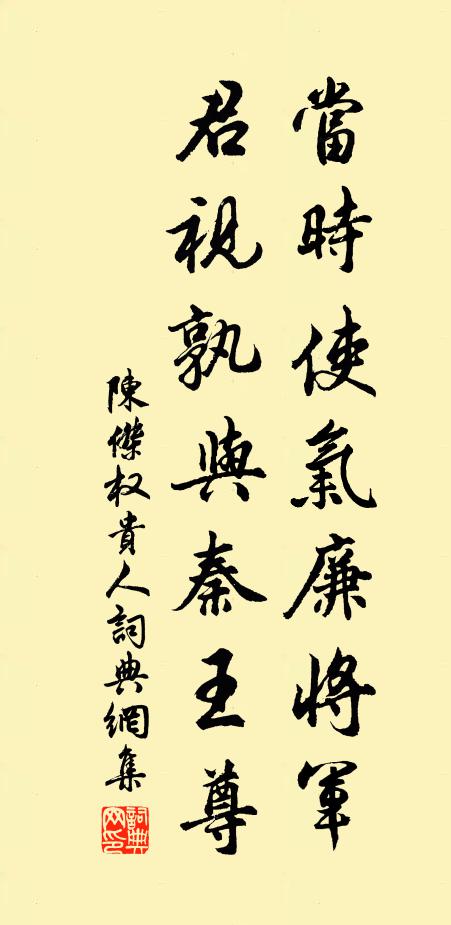 當時使氣廉將軍
君視孰與秦王尊
陳傑权貴人詞典網集
詞典网印